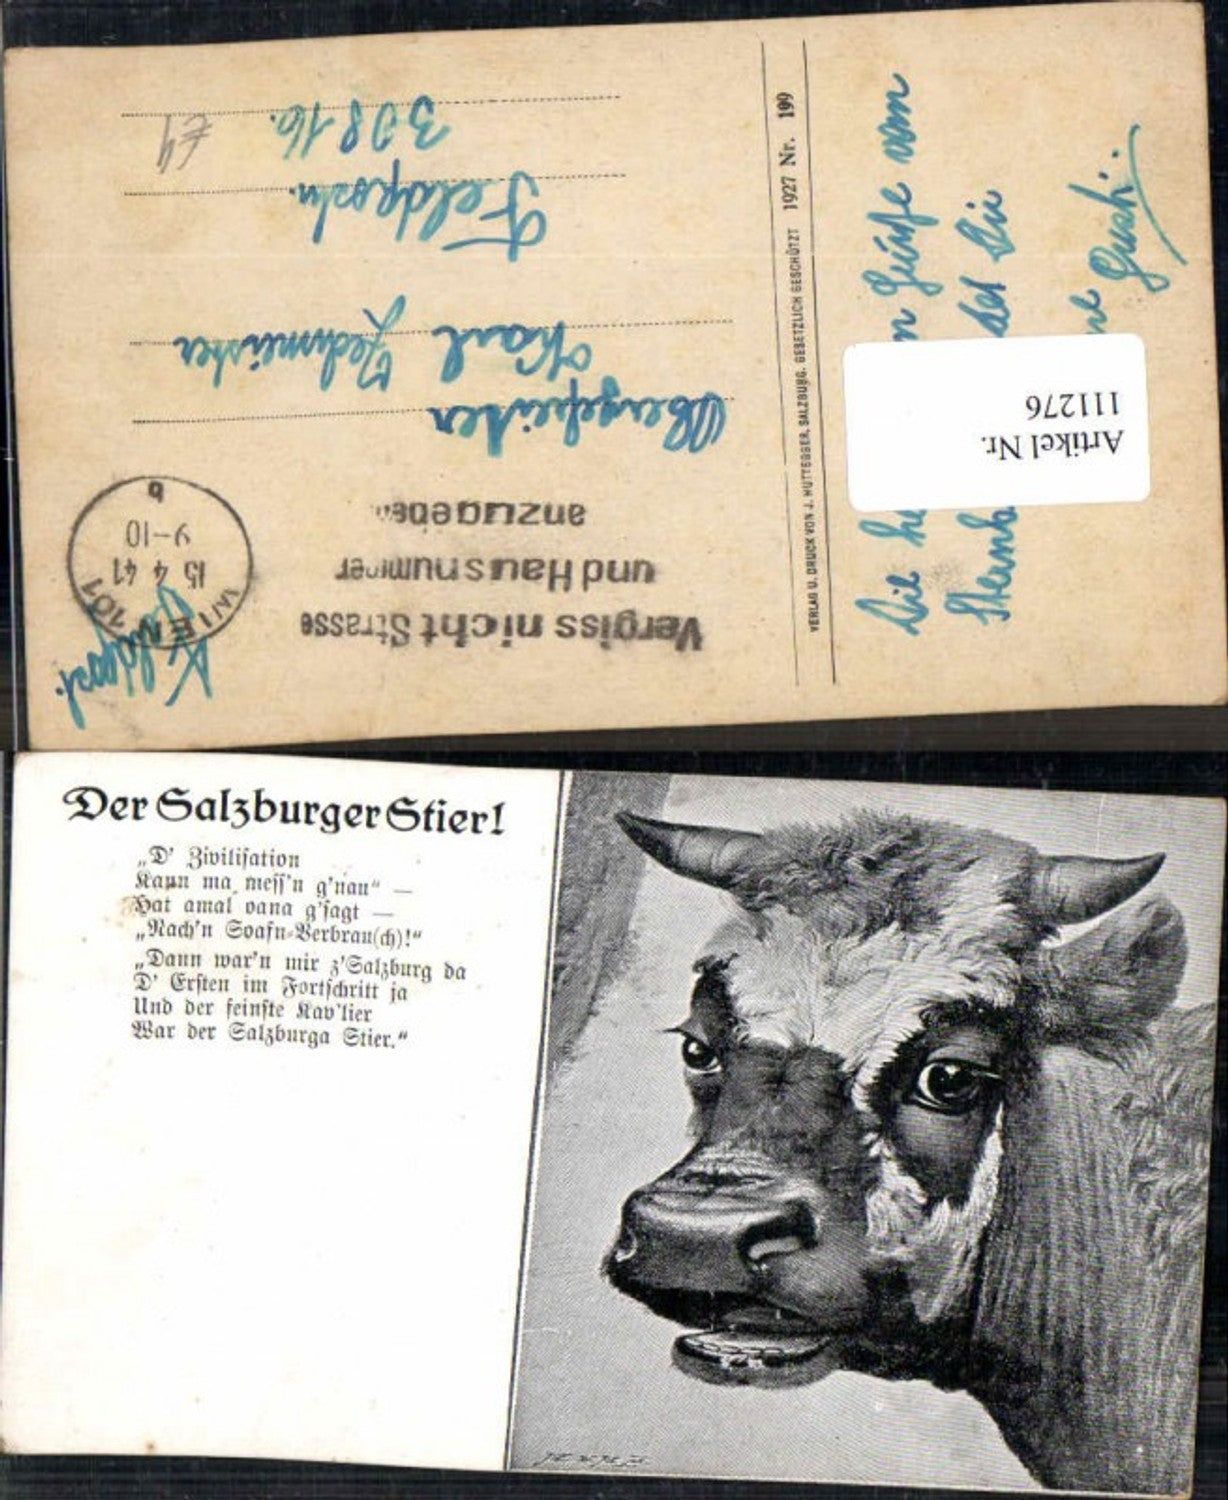 Feldpost.
WIEN 101
15 4 41
9-10
b
Vergiss nicht Strasse
und Hausnummer
anzugeben
Obergefreiter
Karl Zechmeister
Feldpostn.
308 16.
€4
VERLAG U. DRUCK VON J. HUTTEGGER, SALZBURG. GESETZLICH GESCHÜTZT 1927 Nr. 199
Die
vom
Artikel Nr.
111276
Der Salzburger Stier!
„D' Zivilisation
Kann ma mess'n g'nau“ —
Hat amal oana g'sagt —
„Nach'n Soafn-Verbrau(ch)!“
„Dann war'n mir z'Salzburg da
D' Ersten im Fortschritt ja
Und der feinste Kav'lier
War der Salzburga Stier.“